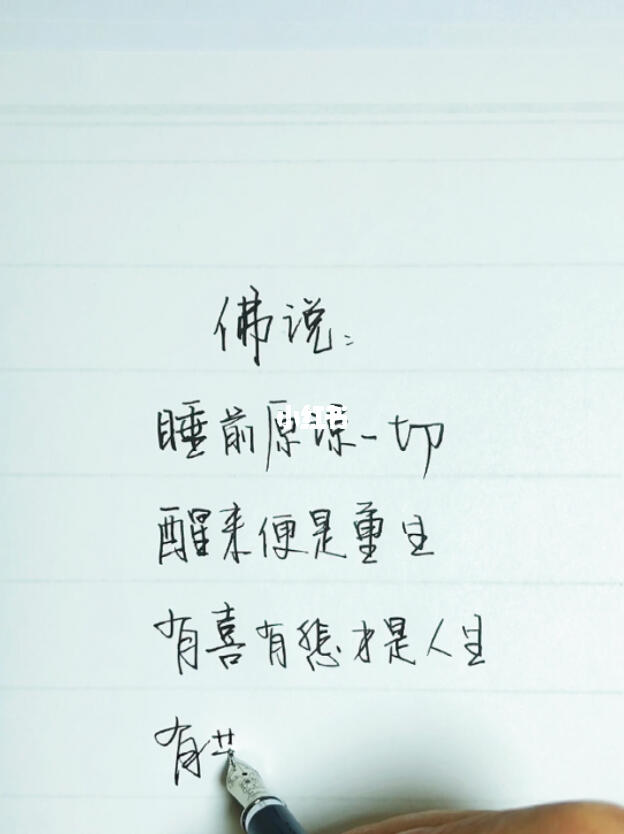 佛说:
睡前原谅一切
小红书
醒来便是重生
有喜有愁才是人生
有